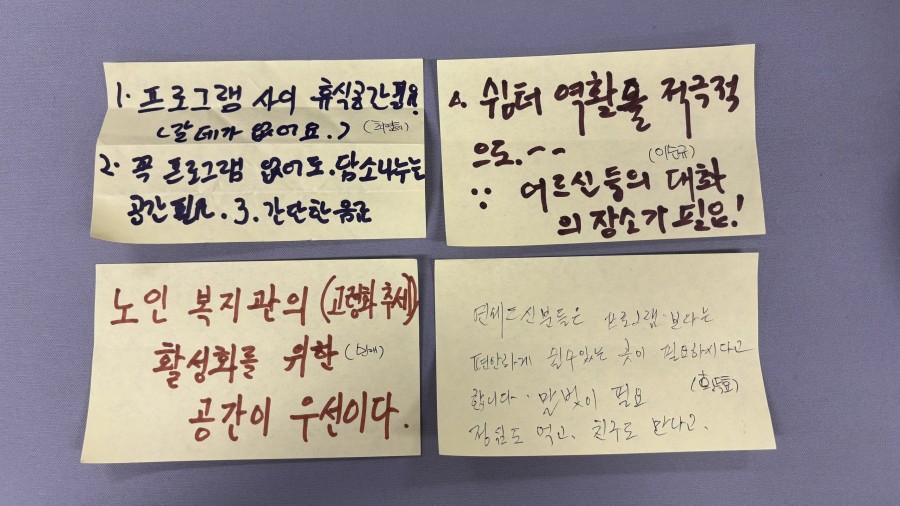 1. 프로그램 사이 휴식공간필요
(갈데가 없어요.)
2. 꼭 프로그램 없어도. 담소나누는
공간필요. 3. 간단한 음료
△. 쉼터 역활을 적극적
으로.~~ (이순규)
∵ 어르신들의 대화
의 장소가 필요!
노인 복지관의 (고령화 추세)
활성화를 위한
공간이 우선이다.
연세드신분들은 프로그램 보다는
편안하게 쉴수있는 곳이 필요하시다고
합니다. 말벗이 필요
점심도 먹고, 친구도 만나고.